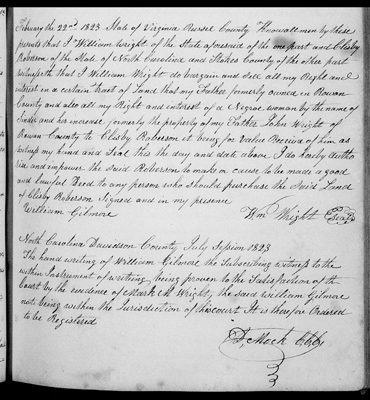 February the 22nd 1823 State of Virginia Russel County Know all men by these
presents that I William Wright of the State aforesaid of the one part and Clisby
Roberson of the State of North Carolina and Stokes County of the other part
witnesseth that I William Wright do bargain and sell all my Right and
interest in a certain tract of Land that my Father formerly owned in Rowan
County and also all my Right and interest of a Negroe woman by the name of
and her increase formerly the property of my Father John Wright of
Rowan County to Clisby Roberson it being for value Receivd of him as
witness my hand and Seal This the day and date above. I do hereby autho
rize and impower the Said Roberson to make or cause to be made a good
and lawful Deed to any persons who should purchase the Said Land
of Clisby Roberson Signed and in my presence
William Gilmore Wm Wright (Seal)
North Carolina Davidson County July Session 1823
The hand writing of William Gilmore the Subscribing witness to the
within Instrument of writing being proven to the Satisfaction of the
Court by the evidence of Mark M Wright, the said William Gilmore
not being within the Jurisdiction of this court It is therefore Ordered
to be Registered
D Mock Clk